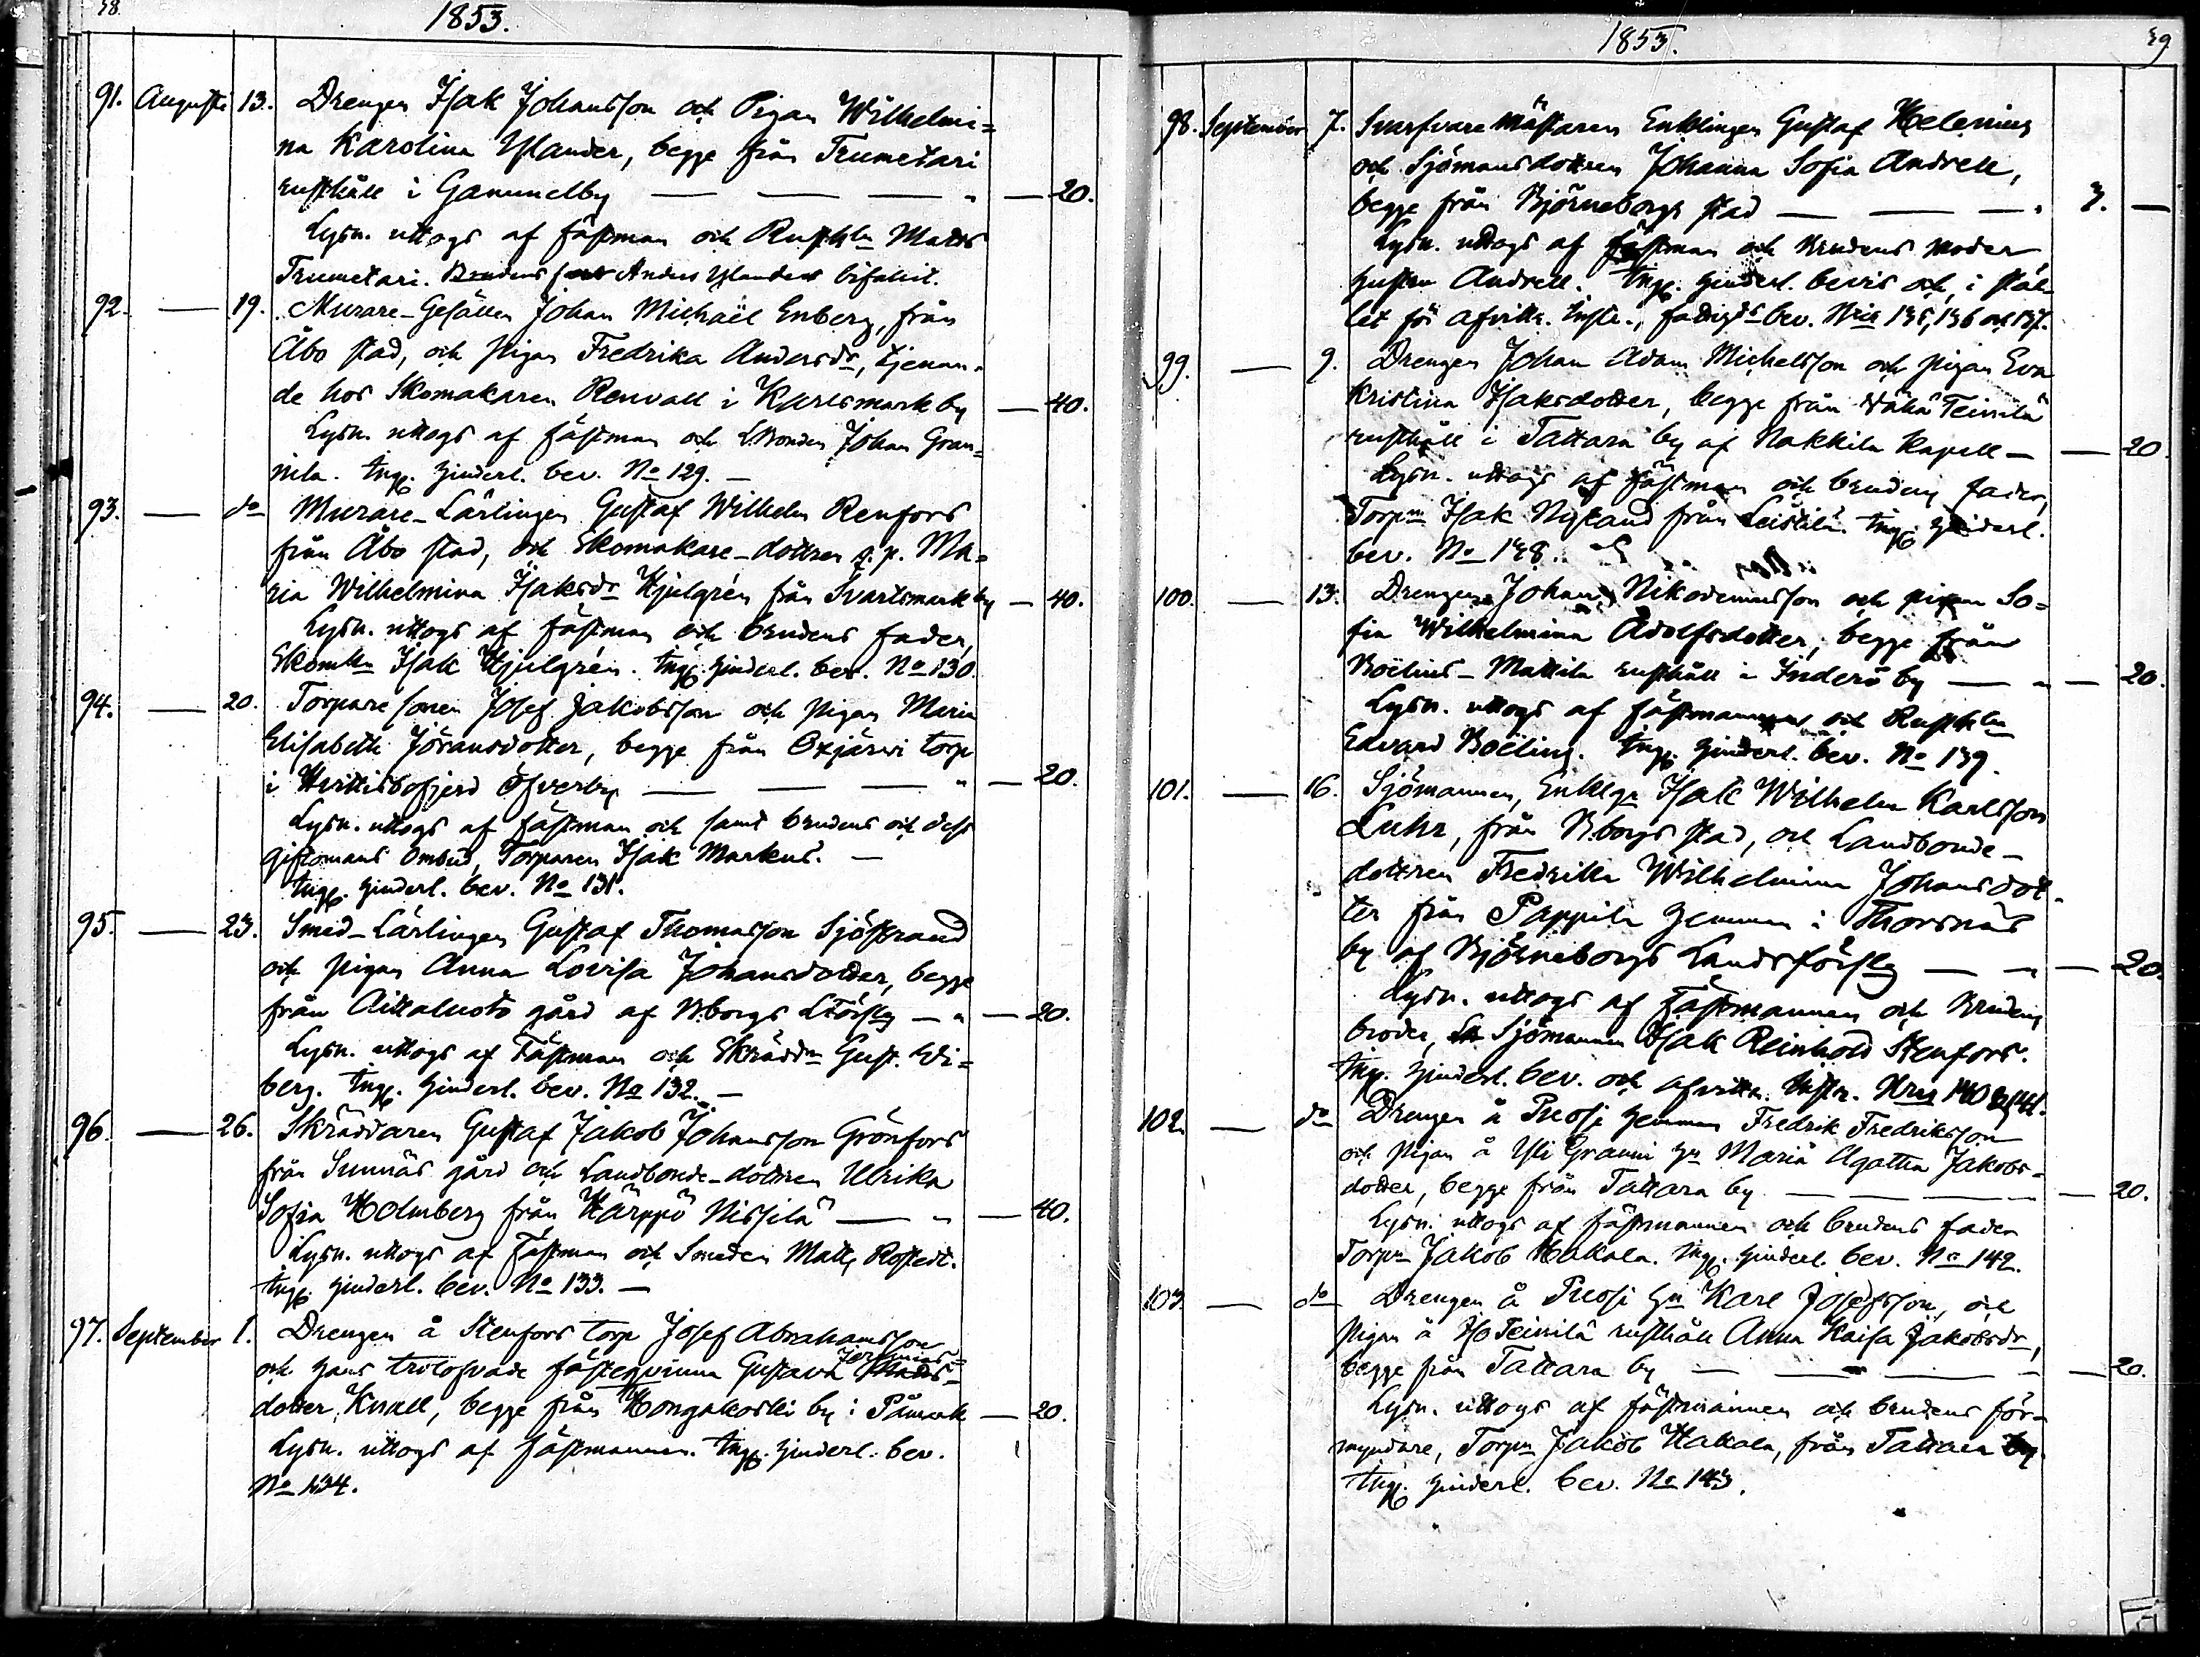 38.
1853.
91. Augusti 13. Drengen Isak Johansson och Pigan Wilhelmi=
na Karolina Ylander, begge från Trumetari
rusthåll i Gammelby — — — " — 20.
Lysn. uttogs af fästman och Rusthln Matts
Trumetari. Brudens far Anders Ylander bifallit.
92. — 19. Murare-Gesällen Johan Michaël Enberg, från
Åbo stad, och pigan Fredrika Andersdr, tjenan-
de hos Skomakaren Renvall i Karlsmark by — 40.
Lysn. uttogs af fästman och LBonden Johan Gran=
nila. Ingg. hinderl. bev. No 129. —
93. — do Murare-Lärlingen Gustaf Wilhelm Renfors
från Åbo stad, och Skomakare-dottren q. p. Ma=
ria Wilhelmina Isaksdr Hjulgrén från Svartsmark by — 40.
Lysn. uttogs af fästman och brudens fader,
Skomkn Isak Hjulgrén. Ingg. hinderl. bev. No 130.
94. — 20. Torparesonen Josef Jakobsson och pigan Maria
Elisabeth Jöransdotter, begge från Oxjärvi torp
i Hvittisbofjerd Öfverby — — — " — 20.
Lysn. uttogs af fästman och samt brudens och dess
giftomans ombud, Torparen Isak Markus. —
Ingg. hinderl. bev. No 131.
95. — 23. Smed-Lärlingen Gustaf Thomasson Sjöstrand
och pigan Anna Lovisa Johansdotter, begge
från Aittaluoto gård af Bborgs LFörslg — " — 20.
Lysn. uttogs af Fästman och Skräddn Gust. Wi=
berg. Ingg. hinderl. bev. No 132. —
96. — 26. Skräddaren Gustaf Jakob Johansson Grönfors
från Sunnäs gård och Landbonde-dottren Ulrika
Sofia Holmberg från Härppö Nissilä — " — 40.
Lysn. uttogs af Fästman och Smeden Matts Rostedt.
Ingg. hinderl. bev. No 133. —
97. September 1. Drengen å Stenfors torp Josef Abrahamsson
och hans trolofvade fästeqvinna Gustava
dotter Knall, begge från Hongakoski by i Påmark — 20.
Lysn. uttogs af fästmannen. Ingg. hinderl. bev.
No 134.
1853.
39
98. September 7. Svarfvare Mästaren Enklingen Gustaf Helenius
och Sjömansdottren Johanna Sofia Andrell,
begge från Björneborgs stad — — — " 3. —
Lysn. uttogs af fästman och Brudens Moder
Gustava Andrell. Ingg. hinderl. bevis och, i stäl-
let för afvittr. Instr., fattigds bev. Nris 135, 136 och 137.
99. — 9. Drengen Johan Adam Michelsson och pigan Eva
Kristina Isaksdotter, begge från Vähä Teinilä
rusthåll i Tattara by af Nakkila kapell — — 20.
Lysn. uttogs af fästman och brudens fader,
Torpn Isak Nyland från Leistilä. Ingg. hinderl.
bev. No 138.
100. — 13. Drengen Johan Nikodemusson och pigan So=
fia Wilhelmina Adolfsdotter, begge från
Boëlius-Mattila rusthåll i Inderö by — " — 20.
Lysn. uttogs af fästmannen och Rusthln
Edvard Boëlius. Ingg. hinderl. bev. No 139.
101. — 16. Sjömannen, Enklgn Isak Wilhelm Karlsson
Luhr, från Bborgs stad, och Landbonde-
dottren Fredrika Wilhelmina Johansdot-
ter från Pappila hemman i Thorsnäs
by af Björneborgs Landsförslg — " — 20.
Lysn. uttogs af Fästmannen och Brudens
broder, Sjömannen Isak Reinhold Stenfors.
Ingg. hinderl. bev. och afvittr. Instr. Nris 140 & 141.
102. — do Drengen å Prossi hemman Fredrik Fredriksson
och pigan å Yli Granni hn Maria Agatha Jakobs-
dotter, begge från Tattara by — — — 20.
Lysn. uttogs af fästmannen och brudens fader
Torpn Jakob Hakala. Ingg. hinderl. bev. No 142.
103. — do Drengen å Prossi hn Karl Josefsson, och
pigan å Iso Teinilä rusthåll Anna Kaisa Jakobsdr,
begge från Tattara by — — — 20.
Lysn. uttogs af fästmannen och brudens för-
myndare, Torpn Jakob Hakala, från Tattara by.
Ingg. hinderl. bev. No 143.